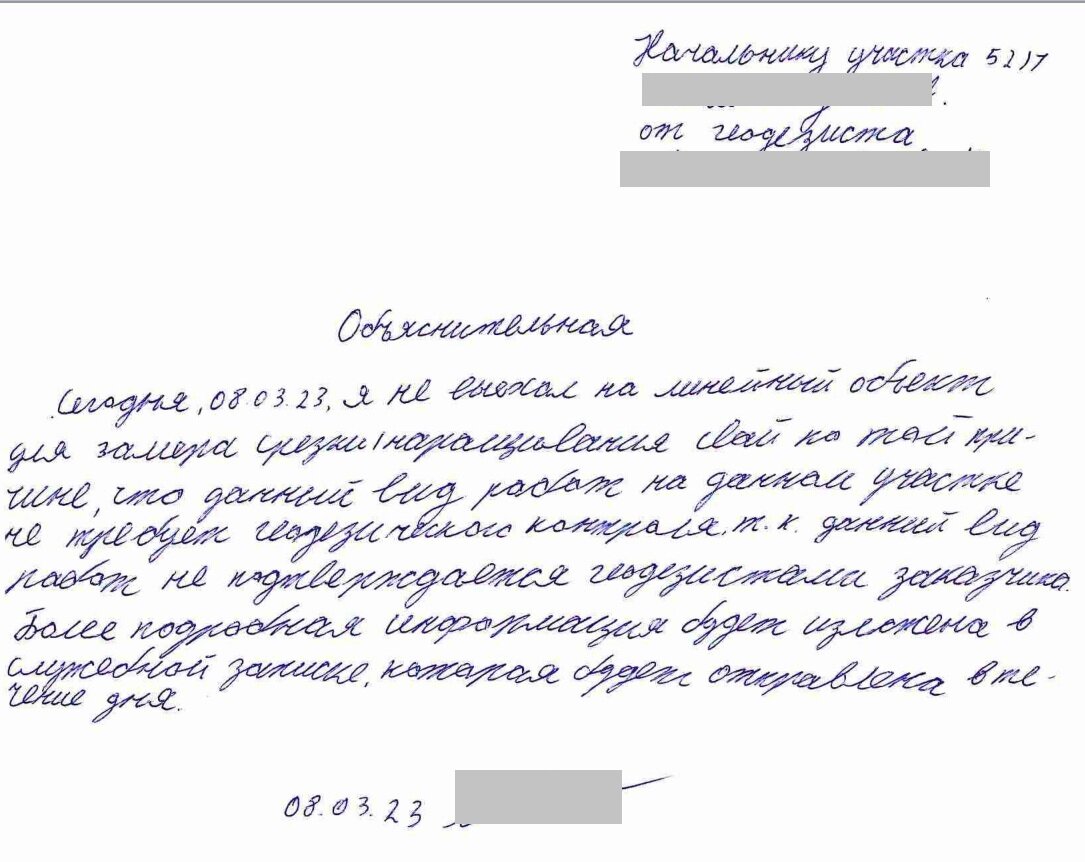 Начальнику участка
от геодезиста
Объяснительная
Сегодня, 08.03.23, я не выехал на линейный объект
для замера срезки/наращивания свай по той при-
чине, что данный вид работ на данном участке
не требует геодезического контроля, т.к. данный вид
работ не подтверждается геодезистами заказчика.
Более подробная информация будет изложена в
служебной записке, которая будет отправлена в те-
чение дня.
08.03.23